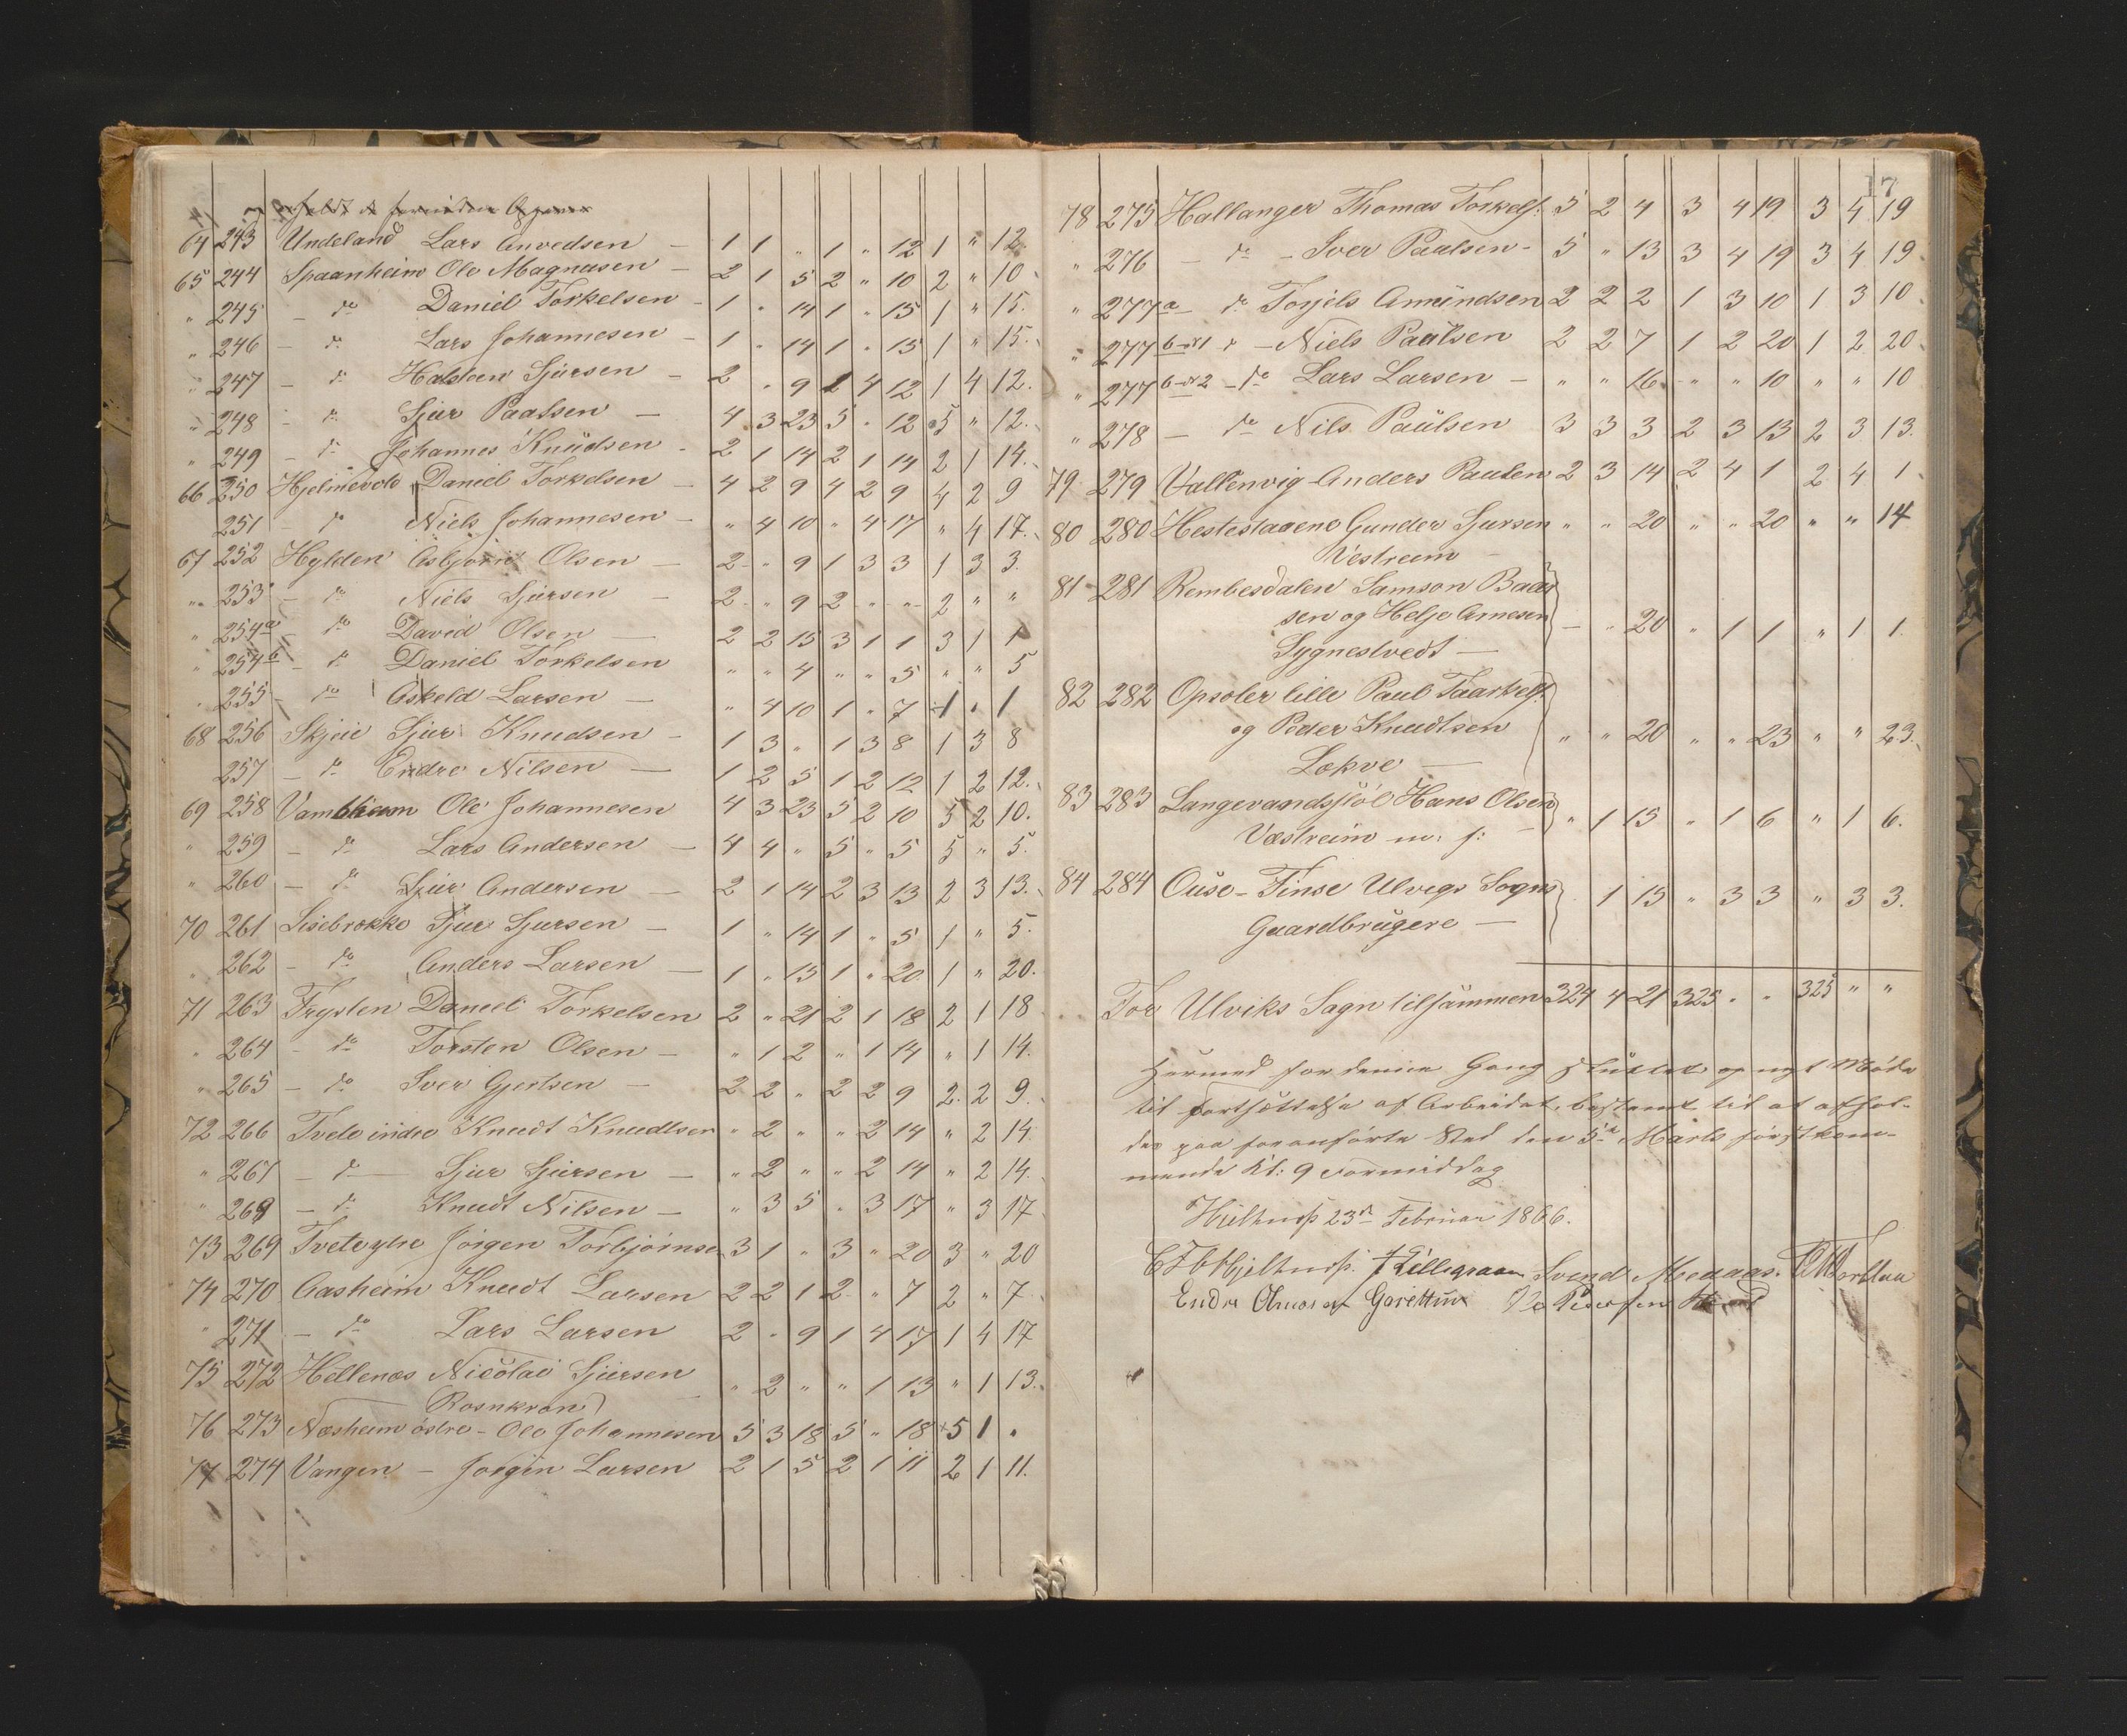 64 243 Undeland Lars Anvedsen — 1 1 " 1 " 12 1 " 12.
65 244 Spaanheim Ole Magnusen — 2 1 5 2 " 10 2 " 10.
" 245 — do Daniel Torkelsen — 1 " 14 1 " 15 1 " 15.
" 246 — do Lars Johannesen — 1 " 14 1 " 15 1 " 15.
" 247 — do Halsten Sjursen — 2 " 9 1 4 12 1 4 12.
" 248 — do Sjur Paalsen — 4 3 23 5 " 12 5 " 12.
" 249 — do Johannes Knudsen — 2 1 14 2 1 14 2 1 14.
66 250 Hjelmevold Daniel Torkelsen — 4 2 9 4 2 9 4 2 9
251 — do Niels Johannesen — " 4 10 " 4 17 " 4 17.
67 252 Hylden Asbjörn Olsen — 2 " 9 1 3 3 1 3 3.
" 253 — do Niels Sjursen — 2 " 9 2 " " 2 " "
" 254a — do David Olsen — 2 2 15 3 1 1 3 1 1
" 254b — do Daniel Torkelsen " " 4 " " 5 " " 5
" 255 — do Askeld Larsen — " 4 10 1 " 7 1 " 1
68 256 Skjeie Sjur Knudsen — 1 3 " 1 3 8 1 3 8
257 — do Endre Nilsen — 1 2 5 1 2 12 1 2 12.
69 258 Vambheim Ole Johannesen 4 3 23 5 2 10 5 2 10.
" 259 — do Lars Andersen — 4 4 " 5 " 5 5 " 5.
" 260 — do Sjur Andersen — 2 1 14 2 3 13 2 3 13.
70 261 Lisebrække Sjur Sjursen — 1 " 14 1 " 5 1 " 5.
" 262 — do Anders Larsen — 1 " 15 1 " 20 1 " 20.
71 263 Trysten Daniel Torkelsen 2 " 21 2 1 18 2 1 18
" 264 — do Torsten Olsen — " 1 2 " 1 14 " 1 14.
" 265 — do Iver Gjertsen — 2 2 " 2 2 9 2 2 9.
72 266 Tveto indre Knudt Knudtsen " 2 " " 2 14 " 2 14.
" 267 — do — Sjur Sjursen — " 2 " " 2 14 " 2 14.
" 268 — do Knudt Nilsen — " 3 5 " 3 17 " 3 17
73 269 Tveteytre Jörgen Torbjörnsen 3 1 " 3 " 20 3 " 20
74 270 Aasheim Knudt Larsen 2 2 1 2 " 7 2 " 7
" 271 — do Lars Larsen 2 " 9 1 4 17 1 4 17
75 272 Hellenæs Nicolai Sjursen " 2 " " 1 13 " 1 13.
Rosnkran
76 273 Næsheim östre – Ole Johannesen 5 3 18 5 " 18 5 1 "
77 274 Vangen – Jørgin Larsen 2 1 5 2 1 11 2 1 11.
17
78 275 Hallanger Thomas Torkels. 5 2 4 3 4 19 3 4 19
" 276 — do — Iver Paulsen – 5 " 13 3 4 19 3 4 19
" 277a — do Torjels Amundsen 2 2 2 1 3 10 1 3 10
" 277 b nr 1 do — Niels Paulsen 2 2 7 1 2 20 1 2 20
" 277 b nr 2 — do Lars Larsen — " " 16 " " 10 " " 10
" 278 — do Nils Paulsen 3 3 3 2 3 13 2 3 13.
79 279 Vallenvig Anders Paulsen 2 3 14 2 4 1 2 4 1
80 280 Hesteslaaeno Gunder Sjursen " " 20 " " 20 " " 14
Vestreim —
81 281 Rembesdalen Samson Baar
sen og Helje Arnesen — " 20 " 1 1 " 1 1.
Lygnestvedt —
82 282 Opsoler lille Paul Taarkels.
og Peder Knudtsen " " 20 " " 23 " " 23.
Lekve —
83 283 Langevandsstöl Hans Olsen " 1 15 " 1 6 " 1 6.
Vestreim m: f: —
84 284 Ouse – Finse Ulvegs Sogns " 1 15 " 3 3 " 3 3.
Gaardbrugere —
For Ulviks Sogn tilsammen 324 4 21 325 " " 325 " "
Hermed for denne Gang sluttet og nyt Møde
til Fortsættelse af Arbeidet bestemt til at afhol-
des paa foranførte Sted den 5te Marts førstkom-
mende Kl: 9 Formiddag
Hjeltnæs 23de Februar 1866.
Hjeltnæs. J Lillegraven Svend Meaaas.
Endre Garettun